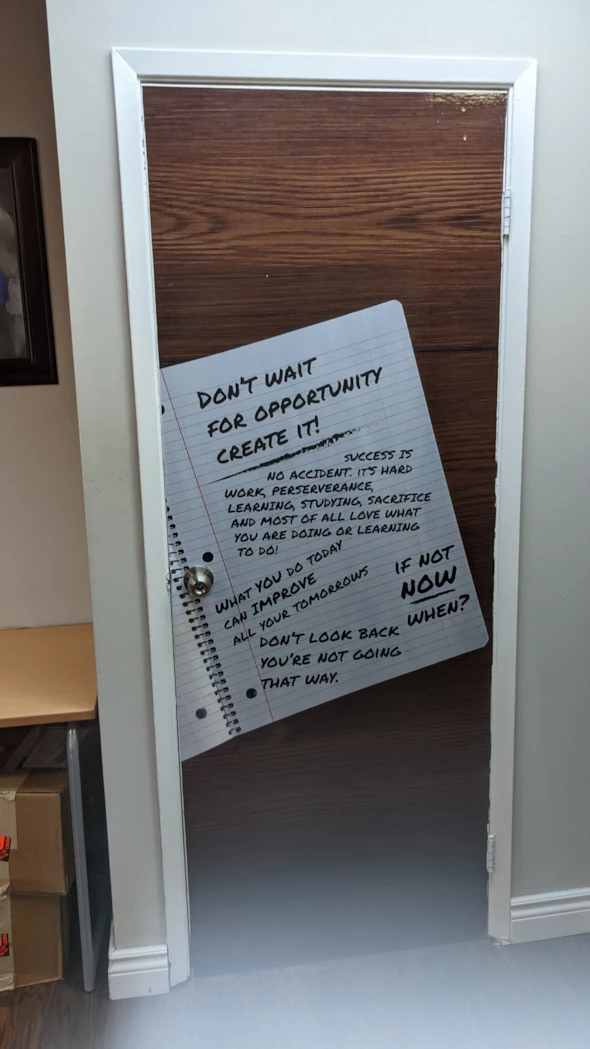 DON'T WAIT
FOR OPPORTUNITY
CREATE IT!
SUCCESS IS
NO ACCIDENT. IT'S HARD
WORK, PERSERVERANCE,
LEARNING, STUDYING, SACRIFICE
AND MOST OF ALL LOVE WHAT
YOU ARE DOING OR LEARNING
TO DO!
WHAT YOU DO TODAY
CAN IMPROVE
ALL YOUR TOMORROWS
IF NOT
NOW
WHEN?
DON'T LOOK BACK
YOU'RE NOT GOING
THAT WAY.